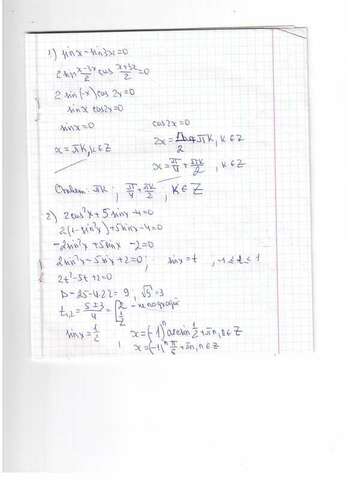 1) sinx - sin3x=0
2 sin (x-3x)/2 cos (x+3x)/2 =0
2 sin(-x) cos 2x=0
sinx cos2x=0
sinx=0 cos2x=0
x=πk, k∈Z 2x= π/2 +πk, k∈Z
x= π/4 + πk/2, k∈Z
Ответ: πk; π/4 + πk/2; k∈Z
2) 2cos²x+5sinx-4=0
2(1-sin²x)+5sinx-4=0
-2sin²x+5sinx-2=0
2sin²x-5sinx+2=0; sinx=t, -1≤t≤1
2t²-5t+2=0
D=25-4·2·2=9, √9=3
t₁,₂= (5±3)/4 = [2 - не подходит
1/2
sinx= 1/2 x=(-1)ⁿ arcsin 1/2 +πn, n∈Z
x=(-1)ⁿ π/6 +πn, n∈Z